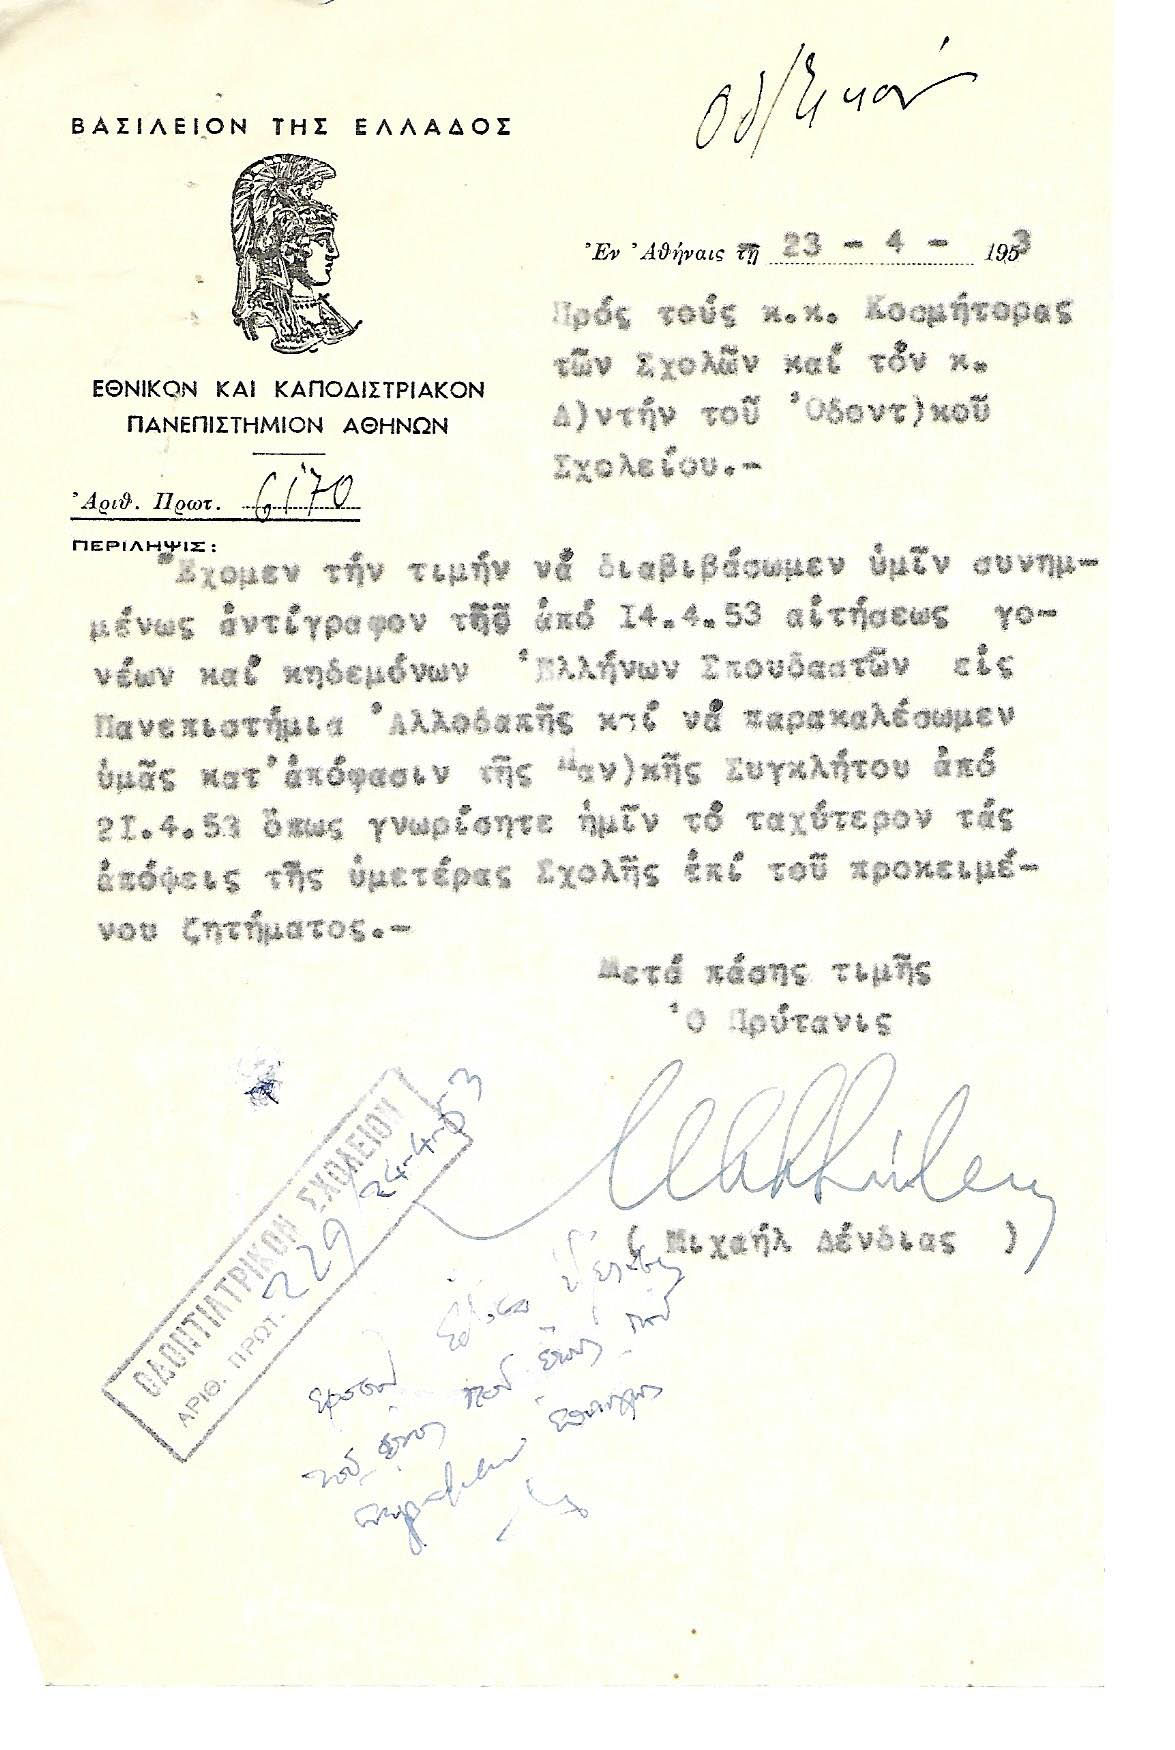 Οδ/τικόν
ΒΑΣΙΛΕΙΟΝ ΤΗΣ ΕΛΛΑΔΟΣ
ΕΘΝΙΚΟΝ ΚΑΙ ΚΑΠΟΔΙΣΤΡΙΑΚΟΝ
ΠΑΝΕΠΙΣΤΗΜΙΟΝ ΑΘΗΝΩΝ
Ἀριθ. Πρωτ. 6170
ΠΕΡΙΛΗΨΙΣ:
Ἐν Ἀθήναις τῇ 23 - 4 - 1953
Πρός τούς κ.κ. Κοσμήτορας
τῶν Σχολῶν καί τόν κ.
Δ)ντήν τοῦ Ὀδοντ)κοῦ
Σχολείου.-
Ἔχομεν τήν τιμήν νά διαβιβάσωμεν ὑμῖν συνημ-
μένως ἀντίγραφον τῆς ἀπό I4.4.53 αἰτήσεως γο-
νέων καί κηδεμόνων Ἑλλήνων Σπουδαστῶν εἰς
Πανεπιστήμια Ἀλλοδαπῆς καί νά παρακαλέσωμεν
ὑμᾶς κατ' ἀπόφασιν τῆς Παν)κῆς Συγκλήτου ἀπό
2I.4.53 ὅπως γνωρίσητε ἡμῖν τό ταχύτερον τάς
ἀπόψεις τῆς ὑμετέρας Σχολῆς ἐπί τοῦ προκειμέ-
νου ζητήματος.-
Μετά πάσης τιμῆς
Ὁ Πρύτανις
( Μιχαήλ Δένδιας )
ΟΔΟΝΤΙΑΤΡΙΚΟΝ ΣΧΟΛΕΙΟΝ
ΑΡΙΘ. ΠΡΩΤ. 229 / 24-4-53